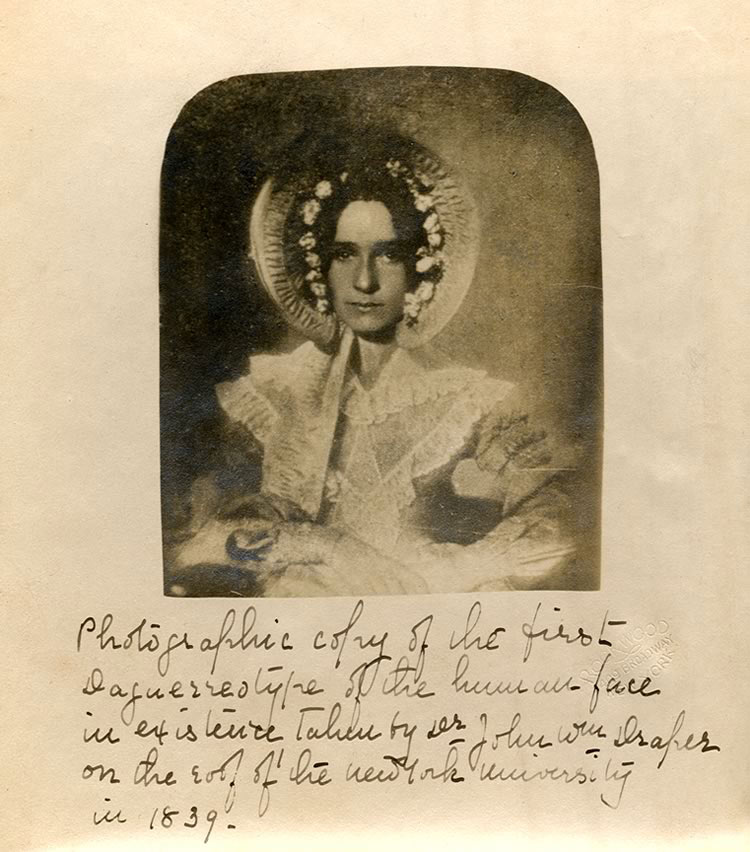 Photographic copy of the first
Daguerreotype of the human face
in existence taken by Dr John Wm Draper
on the roof of the New York University
in 1839.
ROCKWOOD
BROADWAY
YORK